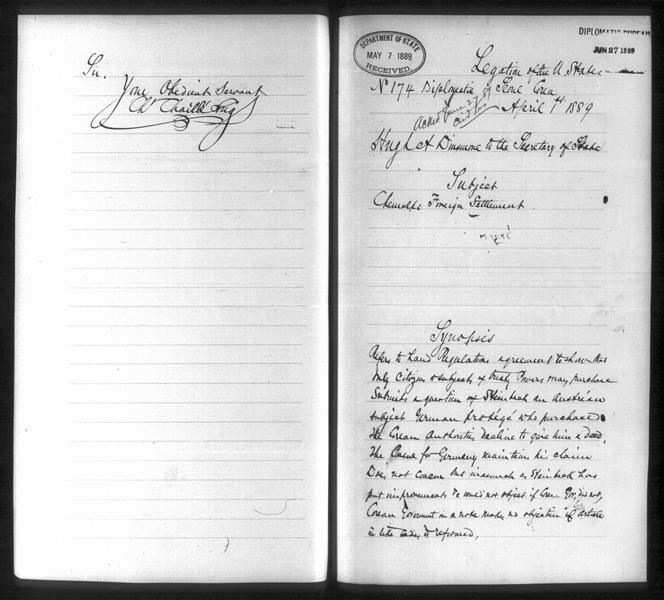 Sir,
Your Obedient Servant
Chs Chaillé Long
DEPARTMENT OF STATE
MAY 7 1889
RECEIVED
DIPLOMATIC BUREAU
JUN 27 1889
Legation of the U. States
No 174 Diplomatic Seoul Corea
April 1st 1889
Ackd June 27
Hugh A Dinsmore to the Secretary of State
Subject
Chemulpo Foreign Settlement
Synopsis
Refers to Land Regulations agreement to show that
only citizens & subjects of treaty Powers may purchase
Submits a question of Steinbeck an Austrian
subject German protégé who purchased
The Corean Authorities decline to give him a deed,
The Consul for Germany maintains his claim
Does not concur but inasmuch as Steinbeck has
put improvements would not object if Corean Gov. did not,
Corean Government in a note makes no objection if
in like cases is reformed,